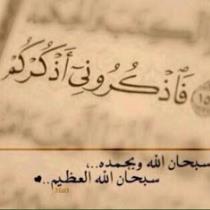 فَٱذْكُرُونِىٓ أَذْكُرْكُمْ
سبحان الله وبحمده..،
سبحان الله العظيم..